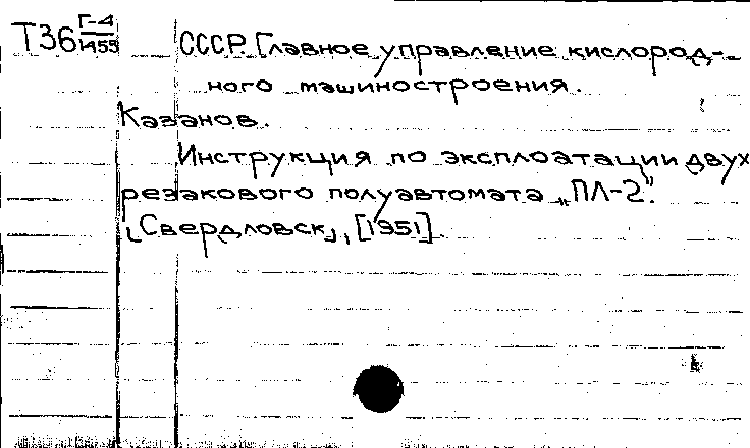 Т36 Г-4/1455
СССР. Главное управление кислород-
ного машиностроения.
Казанов.
Инструкция по эксплоатации двух
резакового полуавтомата „ПЛ-2".
[Свердловск], [1951].